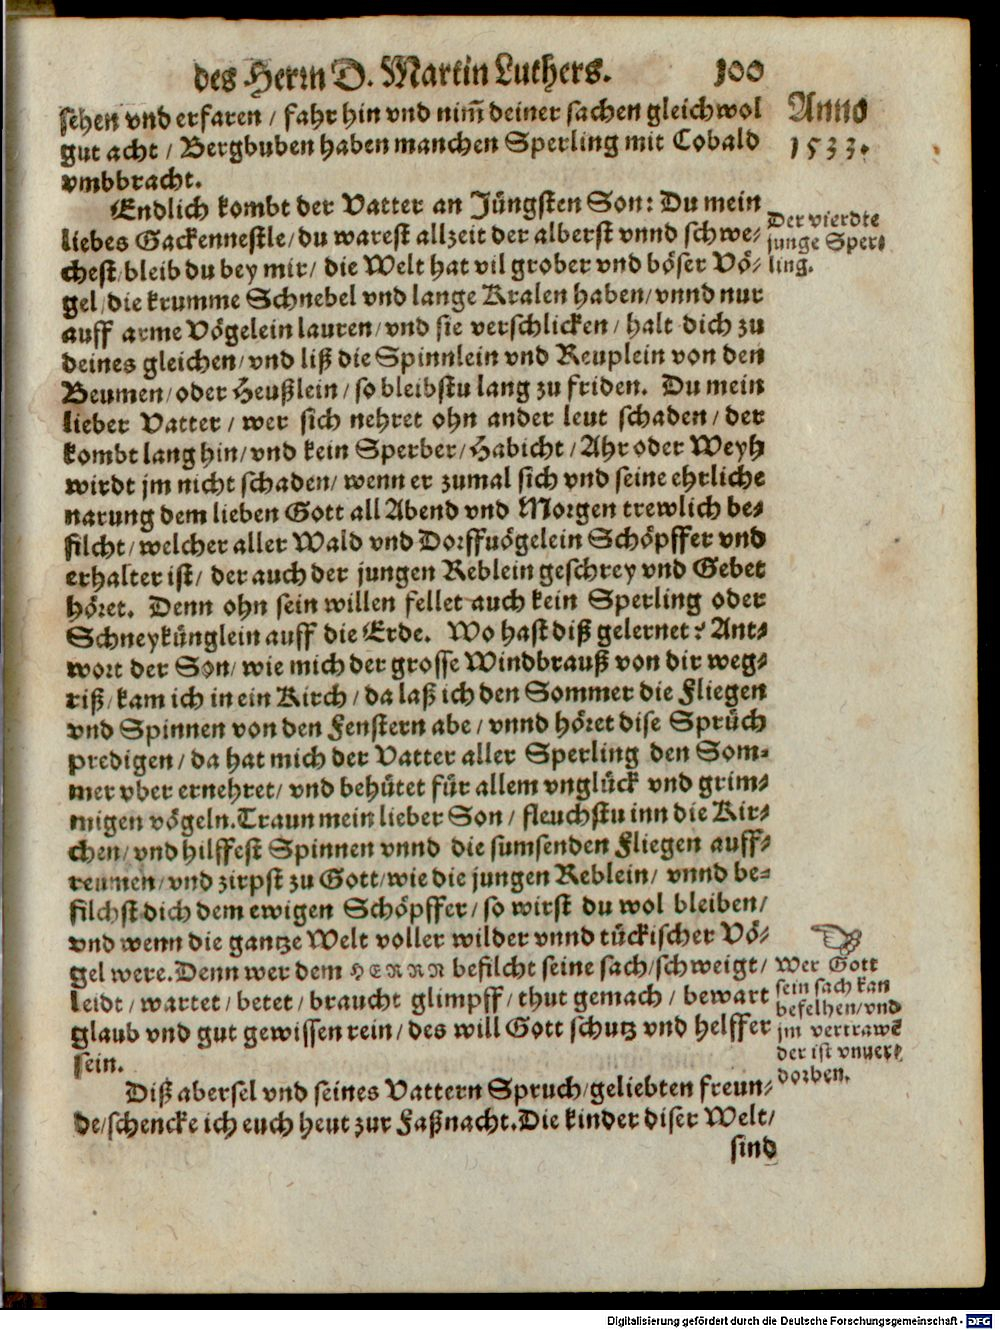 des Herrn D. Martin Luthers. 100
sehen vnd erfaren / fahr hin vnd nim̃ deiner sachen gleichwol
gut acht / Bergbuben haben manchen Sperling mit Cobald
vmbbracht.
Anno
1533.
Endlich kombt der Vatter an Jüngsten Son: Du mein
liebes Gackennestle / du warest allzeit der alberst vnnd schwe-
chest / bleib du bey mir / die Welt hat vil grober vnd böser Vö-
gel / die krumme Schnebel vnd lange Kralen haben / vnnd nur
auff arme Vögelein lauren / vnd sie verschlicken / halt dich zu
deines gleichen / vnd liß die Spinnlein vnd Reuplein von den
Beumen / oder Heußlein / so bleibstu lang zu friden. Du mein
lieber Vatter / wer sich nehret ohn ander leut schaden / der
kombt lang hin / vnd kein Sperber / Habicht / Ahr oder Weyh
wirdt jm nicht schaden / wenn er zumal sich vnd seine ehrliche
narung dem lieben Gott all Abend vnd Morgen trewlich be-
filcht / welcher aller Wald vnd Dorffuögelein Schöpffer vnd
erhalter ist / der auch der jungen Reblein geschrey vnd Gebet
höret. Denn ohn sein willen fellet auch kein Sperling oder
Schneykünglein auff die Erde. Wo hast diß gelernet? Ant-
wort der Son / wie mich der grosse Windbrauß von dir weg-
riß / kam ich in ein Kirch / da laß ich den Sommer die Fliegen
vnd Spinnen von den Fenstern abe / vnnd höret dise Sprüch
predigen / da hat mich der Vatter aller Sperling den Som-
mer vber ernehret / vnd behütet für allem vnglück vnd grim-
migen vögeln. Traun mein lieber Son / fleuchstu inn die Kir-
chen / vnd hilffest Spinnen vnnd die sumsenden Fliegen auff-
reumen / vnd zirpst zu Gott / wie die jungen Reblein / vnnd be-
filchst dich dem ewigen Schöpffer / so wirst du wol bleiben /
vnd wenn die gantze Welt voller wilder vnnd tückischer Vö-
gel were. Denn wer dem HERRN befilcht seine sach / schweigt /
leidt / wartet / betet / braucht glimpff / thut gemach / bewart
glaub vnd gut gewissen rein / des will Gott schutz vnd helffer
sein.
Der vierdte
junge Sper-
ling.
Wer Gott
sein sach kan
befelhen / vnd
jm vertrawẽ
der ist vnuer-
dorben.
Diß abersel vnd seines Vattern Spruch / geliebten freun-
de / schencke ich euch heut zur Faßnacht. Die kinder diser Welt /
sind
Digitalisierung gefördert durch die Deutsche Forschungsgemeinschaft - DFG